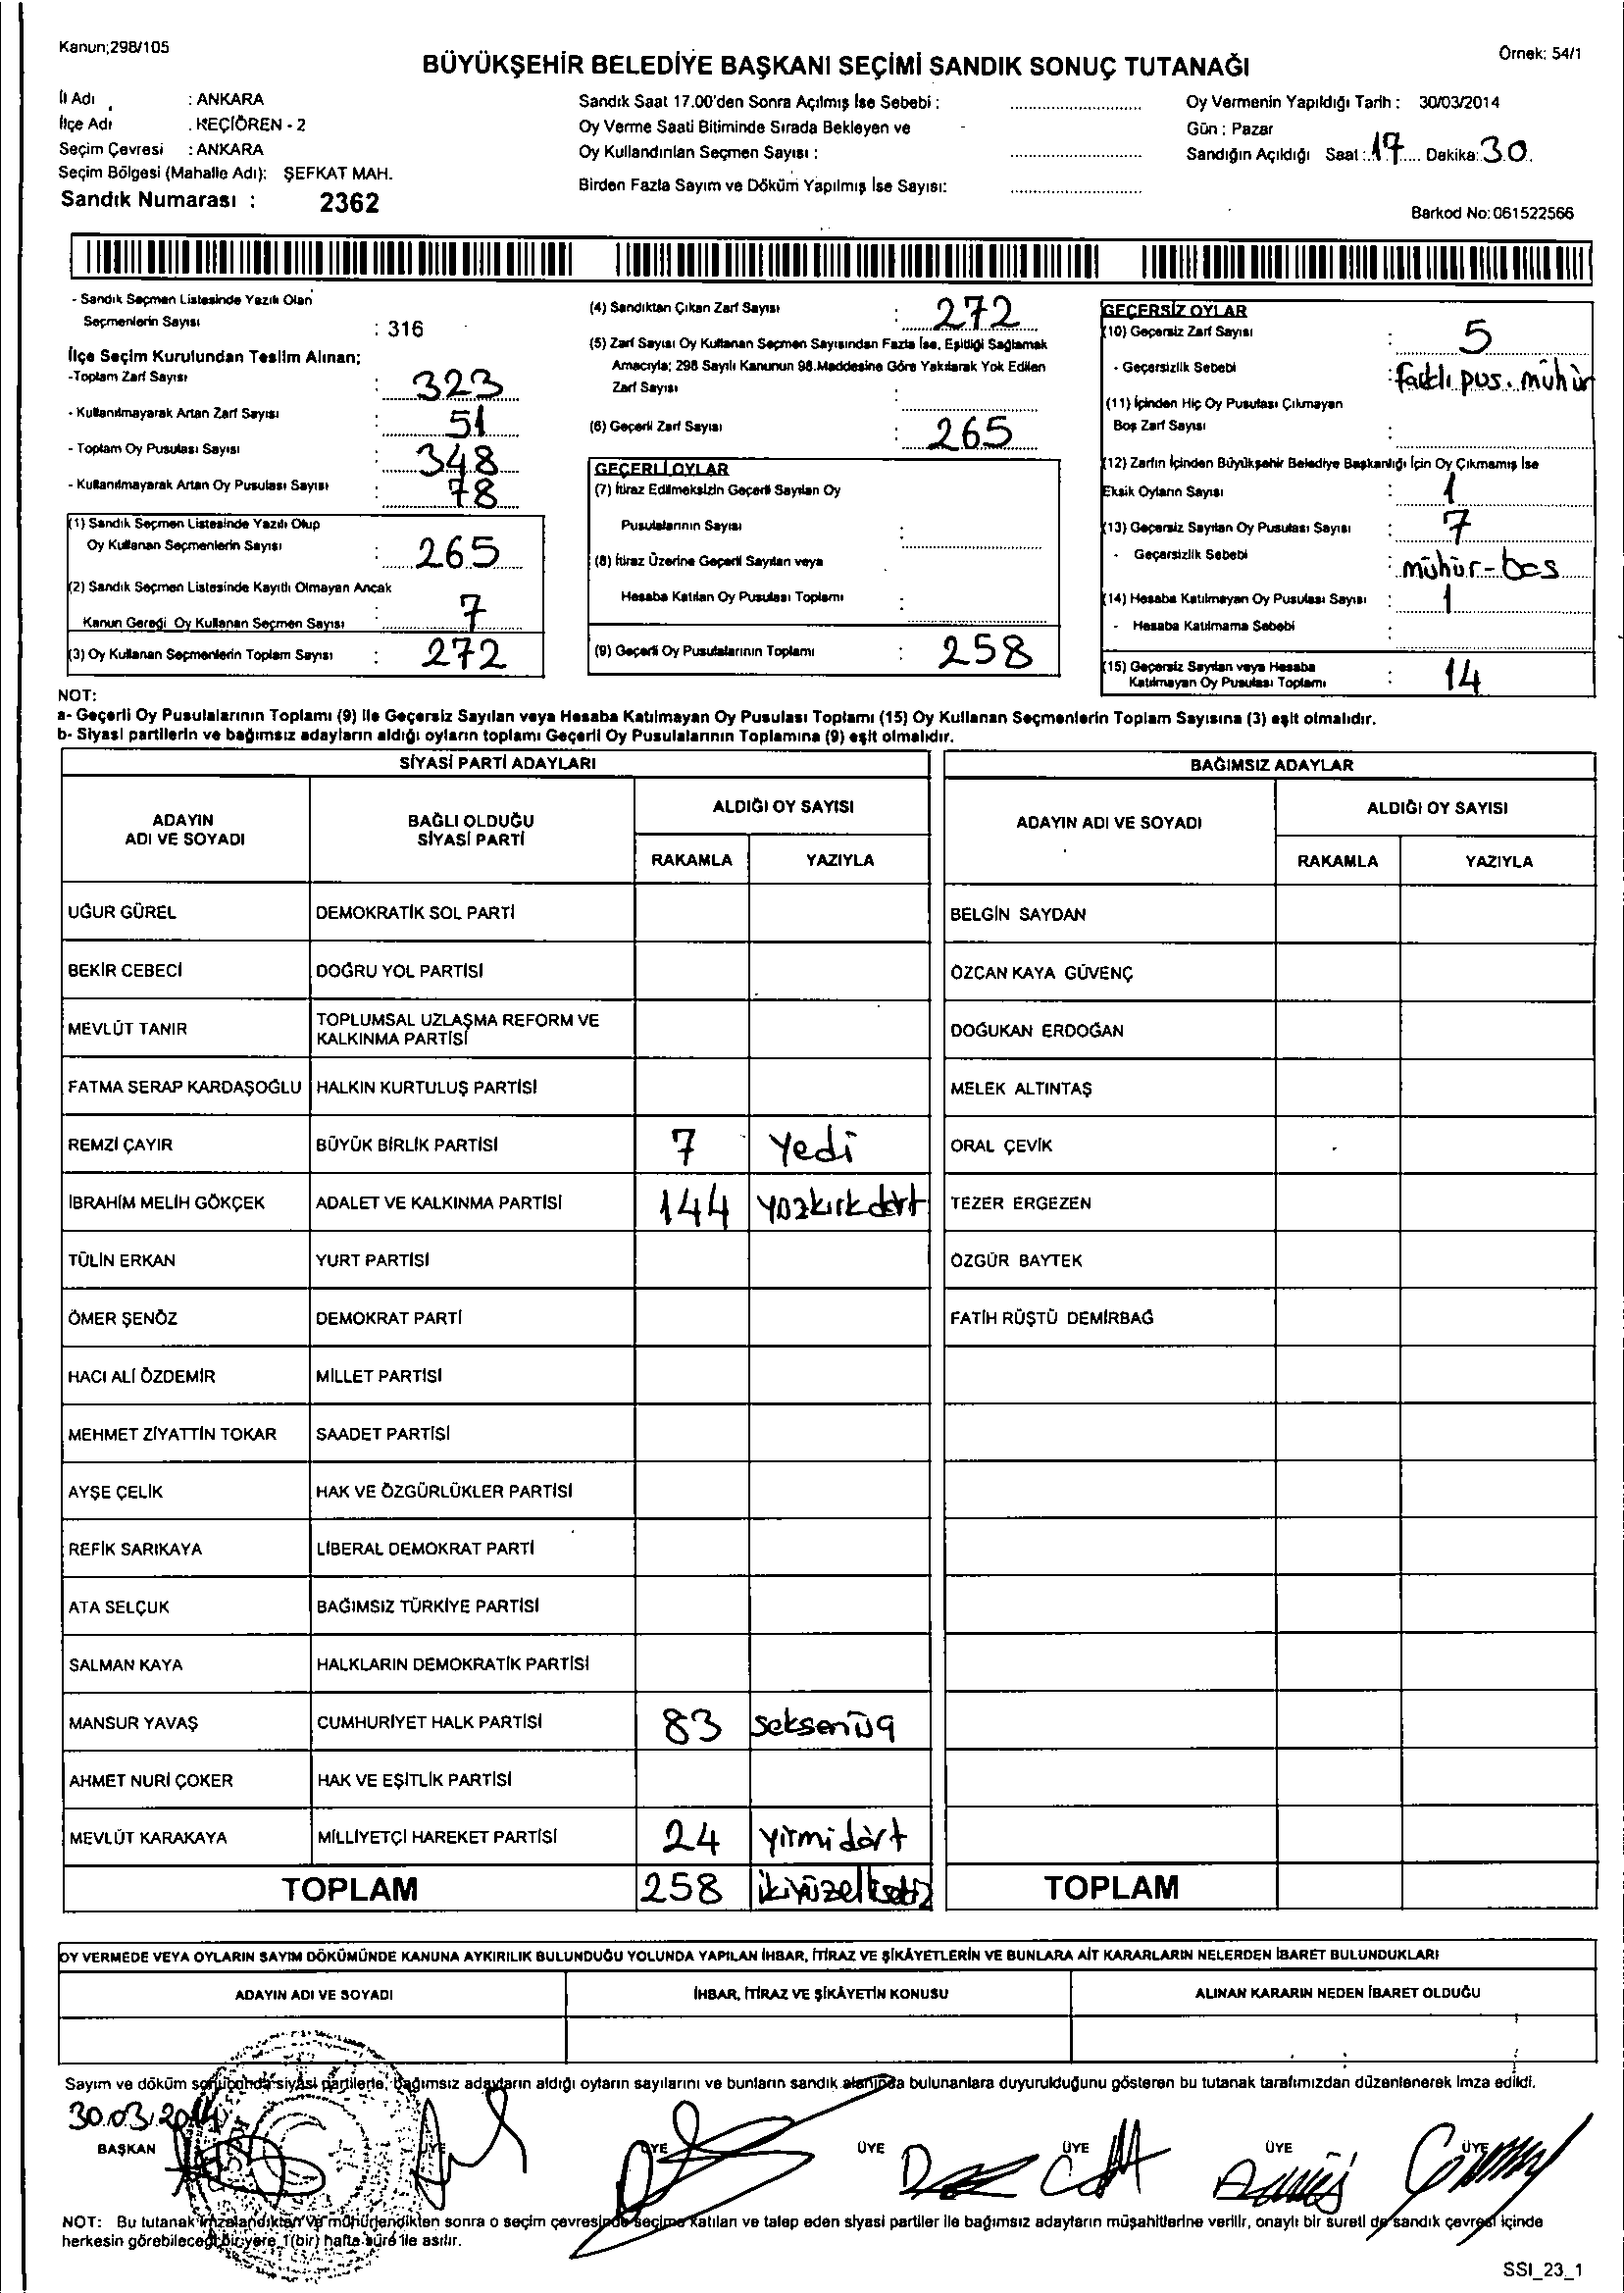 Kanun;298/105
BÜYÜKŞEHİR BELEDİYE BAŞKANI SEÇİMİ SANDIK SONUÇ TUTANAĞI
Örnek: 54/1
İl Adı : ANKARA
İlçe Adı : KEÇİÖREN - 2
Seçim Çevresi : ANKARA
Seçim Bölgesi (Mahalle Adı): ŞEFKAT MAH.
Sandık Numarası : 2362
Sandık Saat 17.00'den Sonra Açılmış İse Sebebi :
Oy Verme Saati Bitiminde Sırada Bekleyen ve
Oy Kullandırılan Seçmen Sayısı :
Birden Fazla Sayım ve Döküm Yapılmış İse Sayısı:
Oy Vermenin Yapıldığı Tarih : 30/03/2014
Gün : Pazar
Sandığın Açıldığı Saat : 17 Dakika: 30
Barkod No: 061522566
- Sandık Seçmen Listesinde Yazılı Olan
Seçmenlerin Sayısı : 316
İlçe Seçim Kurulundan Teslim Alınan;
-Toplam Zarf Sayısı : 323
- Kullanılmayarak Artan Zarf Sayısı : 51
- Toplam Oy Pusulası Sayısı : 348
- Kullanılmayarak Artan Oy Pusulası Sayısı : 78
(1) Sandık Seçmen Listesinde Yazılı Olup
Oy Kullanan Seçmenlerin Sayısı : 265
(2) Sandık Seçmen Listesinde Kayıtlı Olmayan Ancak
Kanun Gereği Oy Kullanan Seçmen Sayısı : 7
(3) Oy Kullanan Seçmenlerin Toplam Sayısı : 272
(4) Sandıktan Çıkan Zarf Sayısı : 272
(5) Zarf Sayısı Oy Kullanan Seçmen Sayısından Fazla İse, Eşitliği Sağlamak
Amacıyla; 298 Sayılı Kanunun 98.Maddesine Göre Yakılarak Yok Edilen
Zarf Sayısı :
(6) Geçerli Zarf Sayısı : 265
GEÇERLİ OYLAR
(7) İtiraz Edilmeksizin Geçerli Sayılan Oy
Pusulalarının Sayısı :
(8) İtiraz Üzerine Geçerli Sayılan veya
Hesaba Katılan Oy Pusulası Toplamı :
(9) Geçerli Oy Pusulalarının Toplamı : 258
GEÇERSİZ OYLAR
(10) Geçersiz Zarf Sayısı : 5
- Geçersizlik Sebebi : farklı pus. mühür
(11) İçinden Hiç Oy Pusulası Çıkmayan
Boş Zarf Sayısı :
(12) Zarfın İçinden Büyükşehir Belediye Başkanlığı İçin Oy Çıkmamış İse
Eksik Oyların Sayısı : 1
(13) Geçersiz Sayılan Oy Pusulası Sayısı : 7
- Geçersizlik Sebebi : mühür-bos
(14) Hesaba Katılmayan Oy Pusulası Sayısı : 1
- Hesaba Katılmama Sebebi :
(15) Geçersiz Sayılan veya Hesaba
Katılmayan Oy Pusulası Toplamı : 14
NOT:
a- Geçerli Oy Pusulalarının Toplamı (9) ile Geçersiz Sayılan veya Hesaba Katılmayan Oy Pusulası Toplamı (15) Oy Kullanan Seçmenlerin Toplam Sayısına (3) eşit olmalıdır.
b- Siyasi partilerin ve bağımsız adayların aldığı oyların toplamı Geçerli Oy Pusulalarının Toplamına (9) eşit olmalıdır.
SİYASİ PARTİ ADAYLARI
ADAYIN ADI VE SOYADI BAĞLI OLDUĞU SİYASİ PARTİ ALDIĞI OY SAYISI
RAKAMLA YAZIYLA
BAĞIMSIZ ADAYLAR
ADAYIN ADI VE SOYADI ALDIĞI OY SAYISI
RAKAMLA YAZIYLA
UĞUR GÜREL DEMOKRATİK SOL PARTİ BELGİN SAYDAN
BEKİR CEBECİ DOĞRU YOL PARTİSİ ÖZCAN KAYA GÜVENÇ
MEVLÜT TANIR TOPLUMSAL UZLAŞMA REFORM VE KALKINMA PARTİSİ DOĞUKAN ERDOĞAN
FATMA SERAP KARDAŞOĞLU HALKIN KURTULUŞ PARTİSİ MELEK ALTINTAŞ
REMZİ ÇAYIR BÜYÜK BİRLİK PARTİSİ 7 Yedi ORAL ÇEVİK
İBRAHİM MELİH GÖKÇEK ADALET VE KALKINMA PARTİSİ 144 yüzkırkdört TEZER ERGEZEN
TÜLİN ERKAN YURT PARTİSİ ÖZGÜR BAYTEK
ÖMER ŞENÖZ DEMOKRAT PARTİ FATİH RÜŞTÜ DEMİRBAĞ
HACI ALİ ÖZDEMİR MİLLET PARTİSİ
MEHMET ZİYATTİN TOKAR SAADET PARTİSİ
AYŞE ÇELİK HAK VE ÖZGÜRLÜKLER PARTİSİ
REFİK SARIKAYA LİBERAL DEMOKRAT PARTİ
ATA SELÇUK BAĞIMSIZ TÜRKİYE PARTİSİ
SALMAN KAYA HALKLARIN DEMOKRATİK PARTİSİ
MANSUR YAVAŞ CUMHURİYET HALK PARTİSİ 83 seksenüç
AHMET NURİ ÇOKER HAK VE EŞİTLİK PARTİSİ
MEVLÜT KARAKAYA MİLLİYETÇİ HAREKET PARTİSİ 24 yirmidört
TOPLAM 258 ikiyüzellisekiz TOPLAM
OY VERMEDE VEYA OYLARIN SAYIM DÖKÜMÜNDE KANUNA AYKIRILIK BULUNDUĞU YOLUNDA YAPILAN İHBAR, İTİRAZ VE ŞİKÂYETLERİN VE BUNLARA AİT KARARLARIN NELERDEN İBARET BULUNDUKLARI
ADAYIN ADI VE SOYADI İHBAR, İTİRAZ VE ŞİKÂYETİN KONUSU ALINAN KARARIN NEDEN İBARET OLDUĞU
Sayım ve döküm sonucunda siyasi partilerle, bağımsız adayların aldığı oyların sayılarını ve bunların sandık alanında bulunanlara duyurulduğunu gösteren bu tutanak tarafımızdan düzenlenerek imza edildi.
30.03.2014
BAŞKAN ÜYE ÜYE ÜYE ÜYE ÜYE ÜYE
NOT: Bu tutanak imzalandıktan ve mühürlendikten sonra o seçim çevresinde seçime katılan ve talep eden siyasi partiler ile bağımsız adayların müşahitlerine verilir, onaylı bir sureti de sandık çevresi içinde
herkesin görebileceği bir yere 1(bir) hafta süre ile asılır.
SSI_23_1